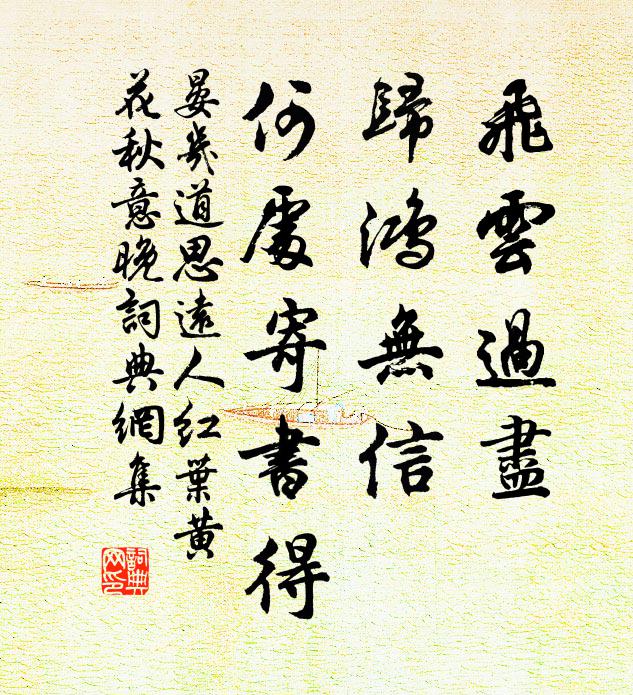 飛雲過盡
歸鴻無信
何處寄書得
晏幾道思遠人紅葉黃
花秋意晚詞典網集
詞典
网印